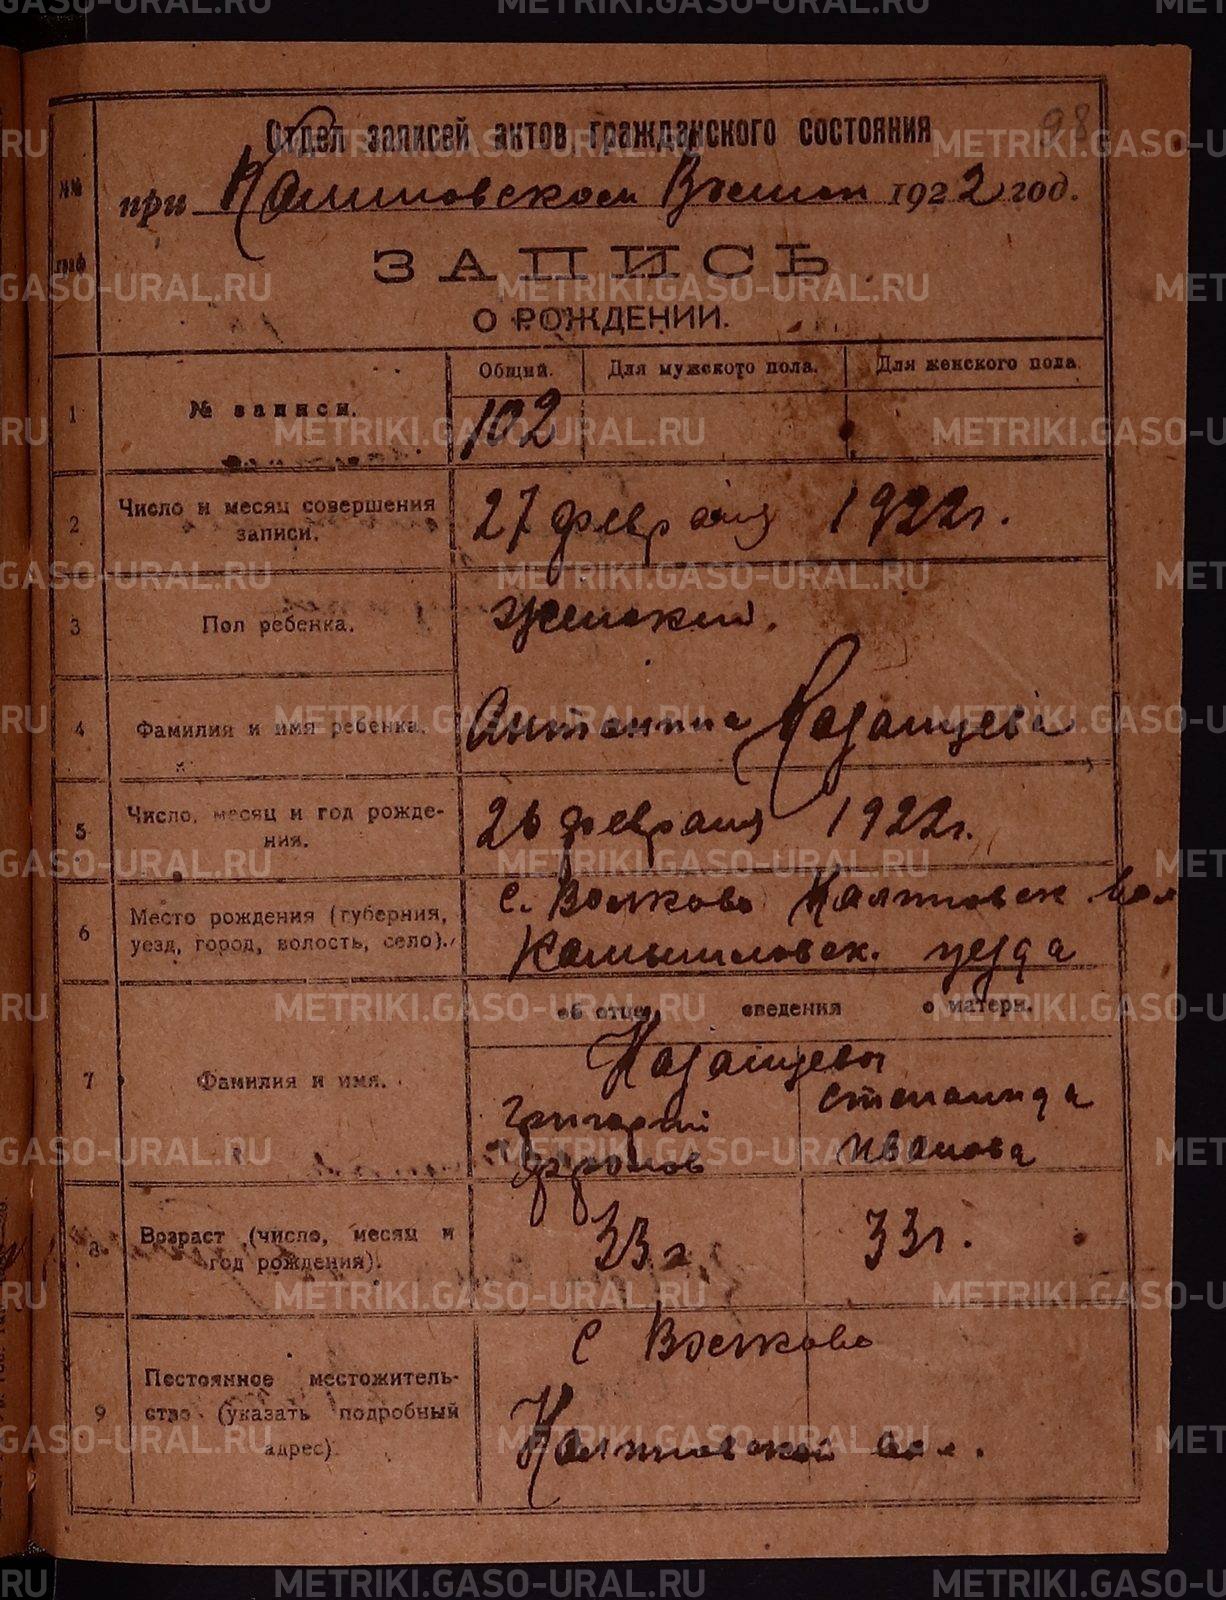 98
Отдел записей актов гражданского состояния
№№ граф
при Калиновском 1922 год.
ЗАПИСЬ
О РОЖДЕНИИ.
Общий. Для мужского пола. Для женского пола.
1 № записи. 102
2 Число и месяц совершения записи. 27 февраля 1922 г.
3 Пол ребенка. Женский.
4 Фамилия и имя ребенка. Антонина Казанцева
5 Число, месяц и год рождения. 26 февраля 1922 г.
6 Место рождения (губерния, уезд, город, волость, село). с. Волково Калиновск вол
Камышловск. уезда
об отце сведения о матери.
7 Фамилия и имя. Казанцевы
Григорий Степанида
Фролов Иванова
8 Возраст (число, месяц и год рождения). 33 г. 33 г.
9 Постоянное местожительство (указать подробный адрес) с Волково
Калиновской вол.
METRIKI.GASO-URAL.RU